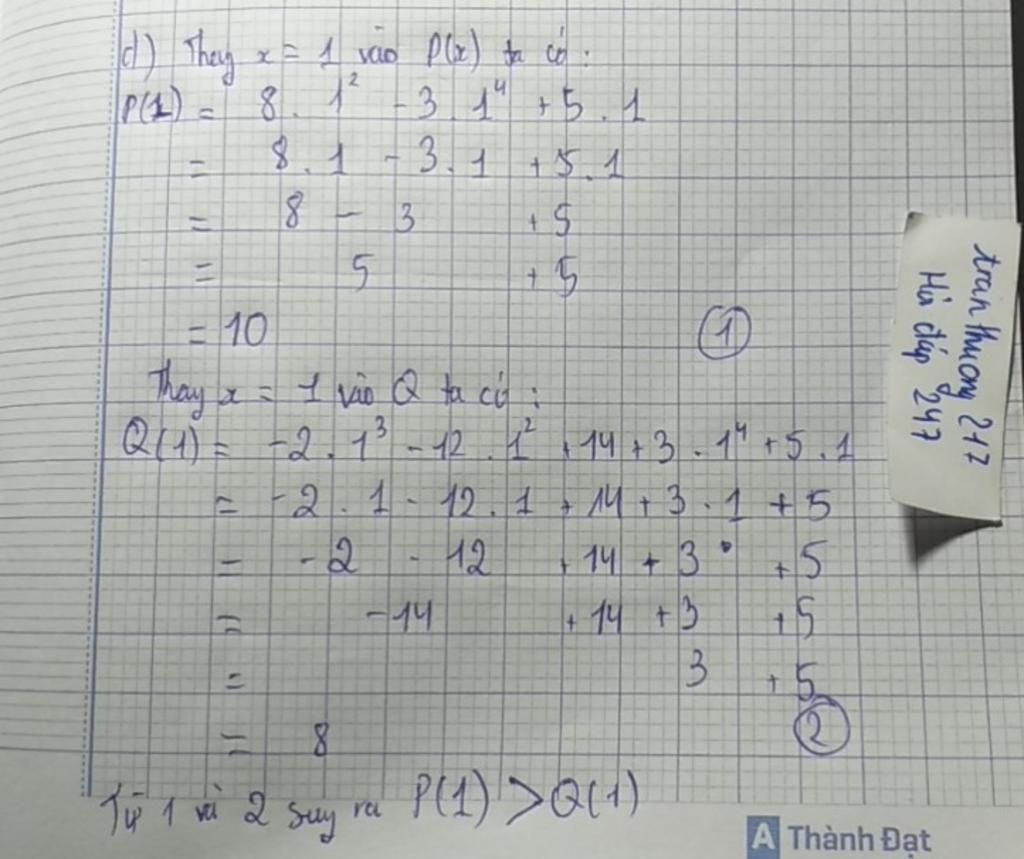 d) Thay x = 1 vào P(x) ta có:
P(1) = 8 . 1² - 3 . 1⁴ + 5 . 1
= 8 . 1 - 3 . 1 + 5 . 1
= 8 - 3 + 5
= 5 + 5
= 10 ①
Thay x = 1 vào Q ta có:
Q(1) = -2 . 1³ - 12 . 1² + 14 + 3 . 1⁴ + 5 . 1
= -2 . 1 - 12 . 1 + 14 + 3 . 1 + 5
= -2 - 12 + 14 + 3 + 5
= -14 + 14 + 3 + 5
= 3 + 5
= 8 ②
Từ 1 và 2 suy ra P(1) > Q(1)
tran thuong 217
Hỏi đáp 247
A Thành Đạt